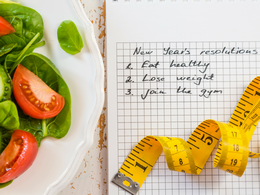 New Year's resolutions
1. Eat healthy
2. Lose weight
3. join the gym